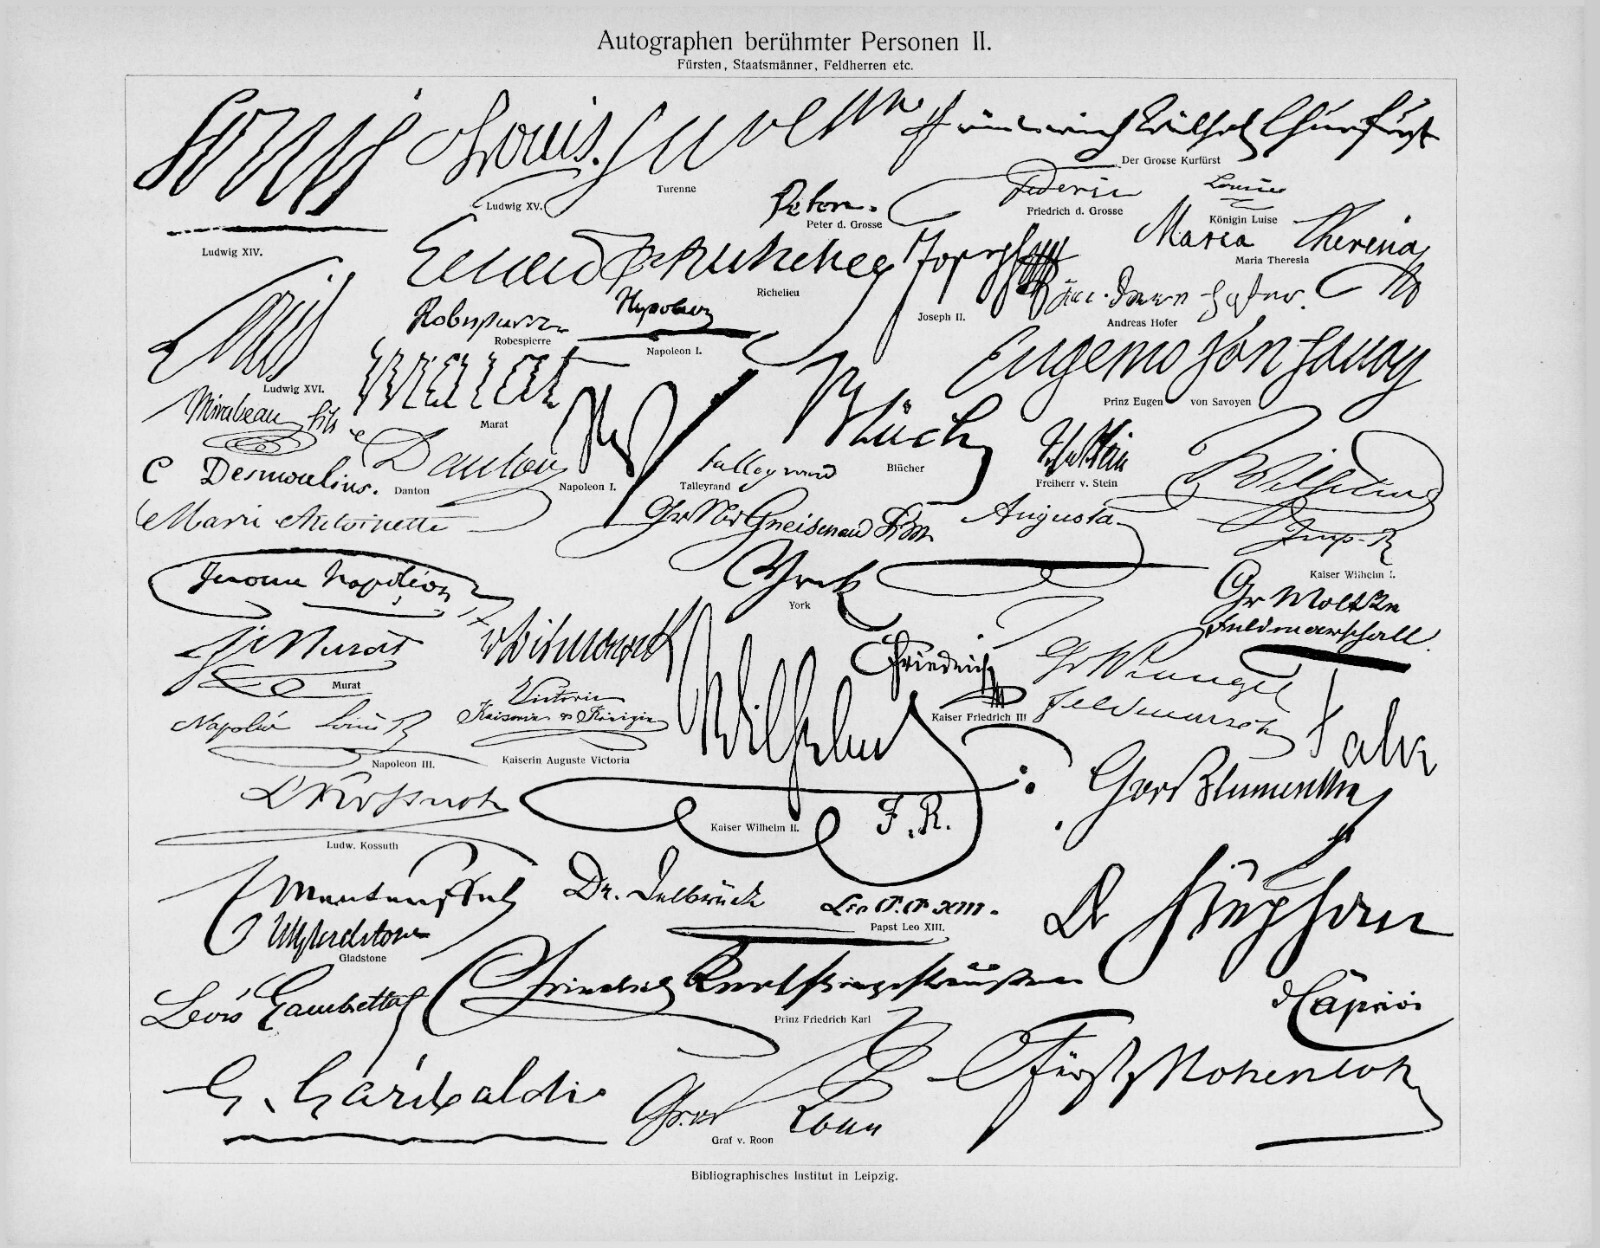 Autographen berühmter Personen II.
Fürsten, Staatsmänner, Feldherren etc.
Louis
Ludwig XIV.
Louis.
Ludwig XV.
Turenne
Turenne
Friedrich Wilhelm Churfürst
Der Grosse Kurfürst
Peter d. Grosse
Federic
Friedrich d. Grosse
Louise
Königin Luise
Maria Theresia
Maria Theresia
Richelieu
Joseph
Joseph II.
Andreas Hofer
Louis
Ludwig XVI.
Robespierre
Robespierre
Napoleon I.
Marat
Marat
Eugenio von Savoy
Prinz Eugen von Savoyen
Mirabeau fils
Danton
Danton
Napoleon I.
Blücher
Blücher
Talleyrand
Talleyrand
Freiherr v. Stein
C Desmoulins.
Marie Antoinette
Gr N v Gneisenau
Augusta
Wilhelm
Imp. R
Kaiser Wilhelm I.
Jerome Napoléon
York
York
Gr Moltke
Feldmarschall.
J Murat
Murat
v Bismarck
Friedrich
Kaiser Friedrich III
Gr Wrangel
Feldmarsch
Falk
Napoléon Louis B
Napoleon III.
Victoria
Kaiserin & Königin
Kaiserin Auguste Victoria
Wilhelm
I. R.
Kaiser Wilhelm II.
Graf Blumenthal
L Kossuth
Ludw. Kossuth
Manteuffel
Dr. Delbrück
Leo P. P. XIII.
Papst Leo XIII.
Dr Stephan
WEGladstone
Gladstone
Léon Gambetta
Friedrich Karl Prinz v Preußen
Prinz Friedrich Karl
v Caprivi
G. Garibaldi
Graf Roon
Graf v. Roon
Fürst Hohenlohe
Bibliographisches Institut in Leipzig.